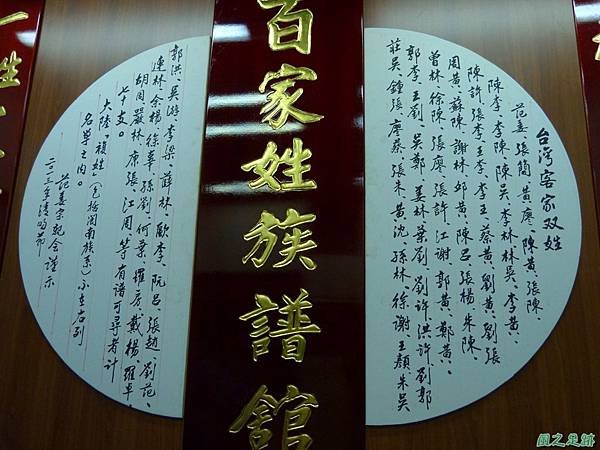 百家姓族譜館
台灣客家双姓
范姜、張簡、黃廖、陳黃、張陳、
陳李、李陳、陳吳、李林、林吳、李黃、
陳許、張李、王李、李王、蔡黃、劉黃、劉張
周黃、蘇陳、謝林、邱黃、陳呂、張楊、朱陳、
曾林、徐陳、張廖、張許、江謝、郭黃、鄭黃、
郭李、王劉、吳鄭、姜林、葉劉、劉許、洪許、劉郭
莊吳、鍾張、廖蔡、張朱、黃沈、孫林、徐謝、王顏、朱吳
郭洪、吳游、李梁、薛林、歐李、阮呂、張趙、劉范、
連林、余楊、徐辜、孫劉、何葉、羅房、戴楊、羅卓、
胡周、嚴林、康張、江周等有譜可尋者計
七十支。
大陸、複姓（包括閩南族系）不在右列
名單之內。
范姜宗親会謹示
二〇一二年清明節
風之足跡